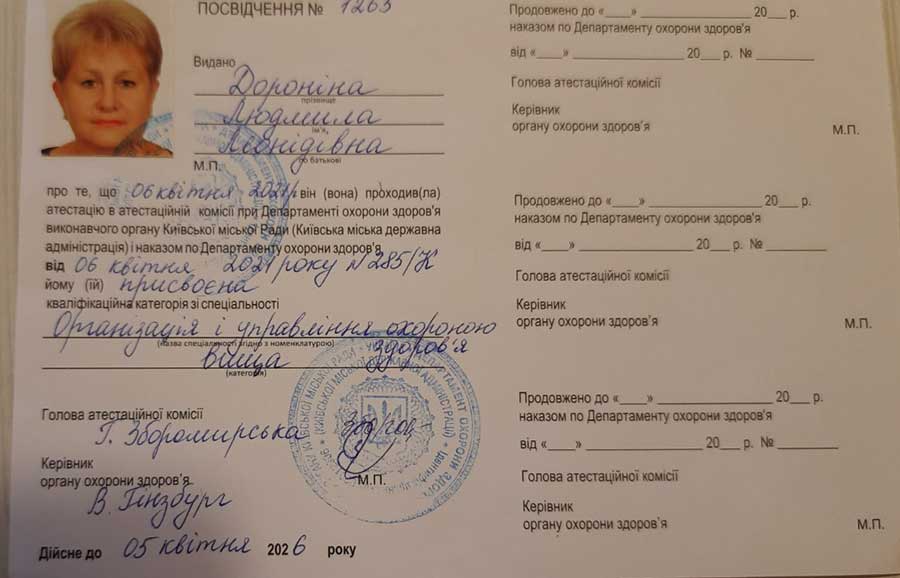 ПОСВІДЧЕННЯ № 1263
Видано
Дороніна
прізвище
Людмила
ім'я,
Леонідівна
по батькові
М.П.
про те, що 06 квітня 2021р. він (вона) проходив(ла)
атестацію в атестаційній комісії при Департаменті охорони здоров'я
виконавчого органу Київської міської Ради (Київська міська державна
адміністрація) і наказом по Департаменту охорони здоров'я
від 06 квітня 2021 року № 285/К
йому (їй) присвоєна
кваліфікаційна категорія зі спеціальності
Організація і управління охороною
(назва спеціальності згідно з номенклатурою)
вища здоров'я
(категорія)
Голова атестаційної комісії
Г. Зборомирська
Керівник М.П.
органу охорони здоров'я
В. Гінзбург
Дійсне до 05 квітня 2026 року
Продовжено до «____» ____________ 20___ р.
наказом по Департаменту охорони здоров'я
від «____» ____________ 20___ р. № ________
Голова атестаційної комісії
Керівник
органу охорони здоров'я М.П.
Продовжено до «____» ____________ 20___ р.
наказом по Департаменту охорони здоров'я
від «____» ____________ 20___ р. № ________
Голова атестаційної комісії
Керівник
органу охорони здоров'я М.П.
Продовжено до «____» ____________ 20___ р.
наказом по Департаменту охорони здоров'я
від «____» ____________ 20___ р. № ________
Голова атестаційної комісії
Керівник
органу охорони здоров'я М.П.